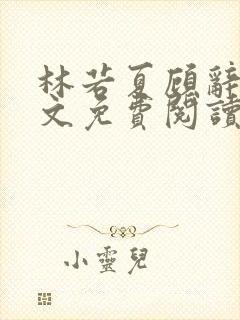 林若夏顾辞
文免費閱讀
小靈兒